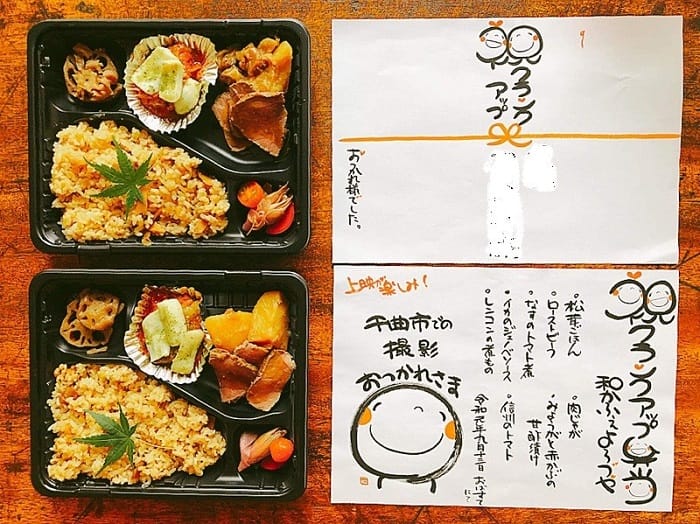 クランク
アップ
おつかれ様でした。
クランクアップ弁当
和かふぇよろづや
・松茸ごはん
・ローストビーフ
・なすのトマト煮
・イカのジェノベソース
・レンコンの煮もの
・肉じゃが
・みょうがと赤かぶの
甘酢漬け
・信州のトマト
令和元年九月十三日 おばすてにて
千曲市での
撮影
おつかれさま
上映が楽しみ!